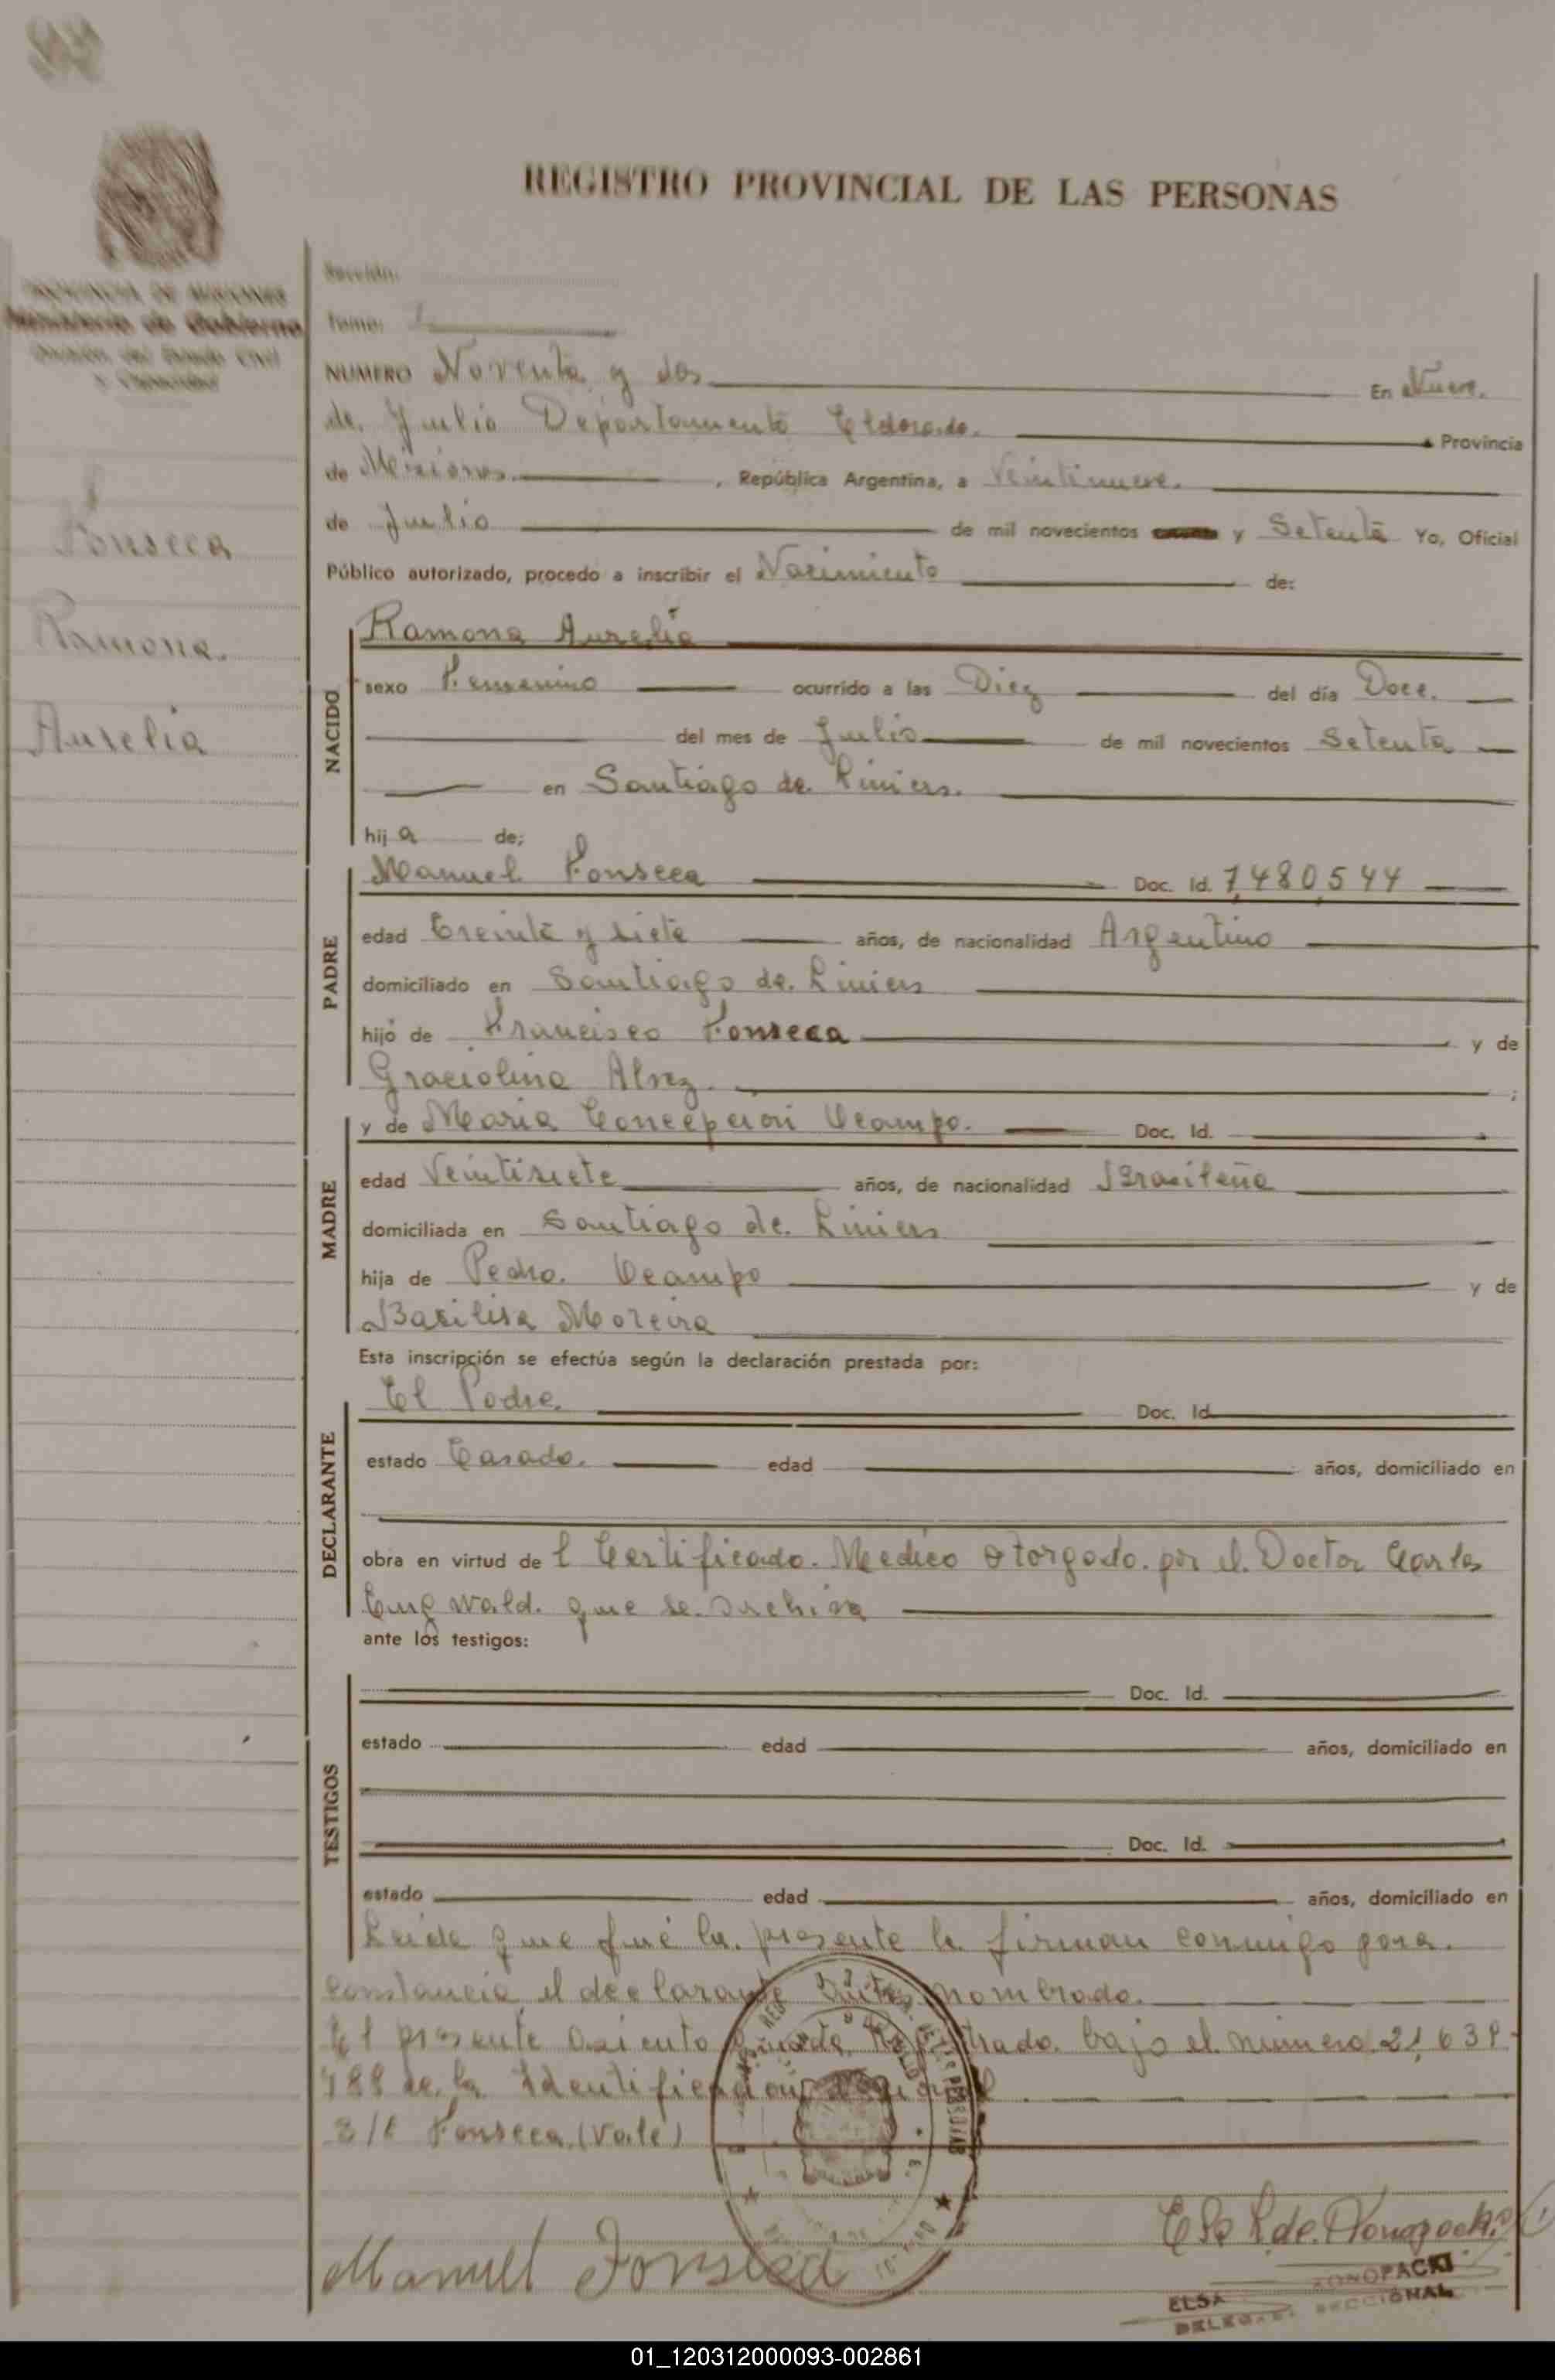 REGISTRO PROVINCIAL DE LAS PERSONAS
PROVINCIA DE MISIONES
Ministerio de Gobierno
Sección:
Tomo:
NUMERO Noventa y dos En Nueve.
de Julio Departamento Eldorado. Provincia
de Misiones , República Argentina, a Veintinueve.
de Julio de mil novecientos y Setenta Yo, Oficial
Público autorizado, procedo a inscribir el Nacimiento de:
Fonseca
Ramona.
Aurelia
NACIDO
Ramona Aurelia
sexo Femenino ocurrido a las Diez del día Doce.
del mes de Julio de mil novecientos Setenta
en Santiago de Liniers.
hij a de;
PADRE
Manuel Fonseca Doc. Id. 7,480,544
edad Treinta y siete años, de nacionalidad Argentino
domiciliado en Santiago de Liniers
hijo de Francisco Fonseca y de
Graciolina Alvez. ;
MADRE
y de Maria Concepcion Ocampo. Doc. Id.
edad Veintisiete años, de nacionalidad Brasileña
domiciliada en Santiago de Liniers
hija de Pedro. Ocampo y de
Basilisa Moreira
Esta inscripción se efectúa según la declaración prestada por:
DECLARANTE
El Padre. Doc. Id.
estado Casado. edad años, domiciliado en
obra en virtud de l Certificado. Medico otorgado. por el. Doctor Carlos
wald. que se archiva
ante los testigos:
TESTIGOS
Doc. Id.
estado edad años, domiciliado en
Doc. Id.
estado edad años, domiciliado en
Leida que fué la presente la firman conmigo para.
constancia el declarante antes nombrado.
El presente asiento queda Registrado bajo el número 21,639
488 de la Identificacion
E/l Fonseca (vale)
Manuel Fonseca
ELSA KONOPACKI
DELEGADA SECCIONAL
01_120312000093-002861